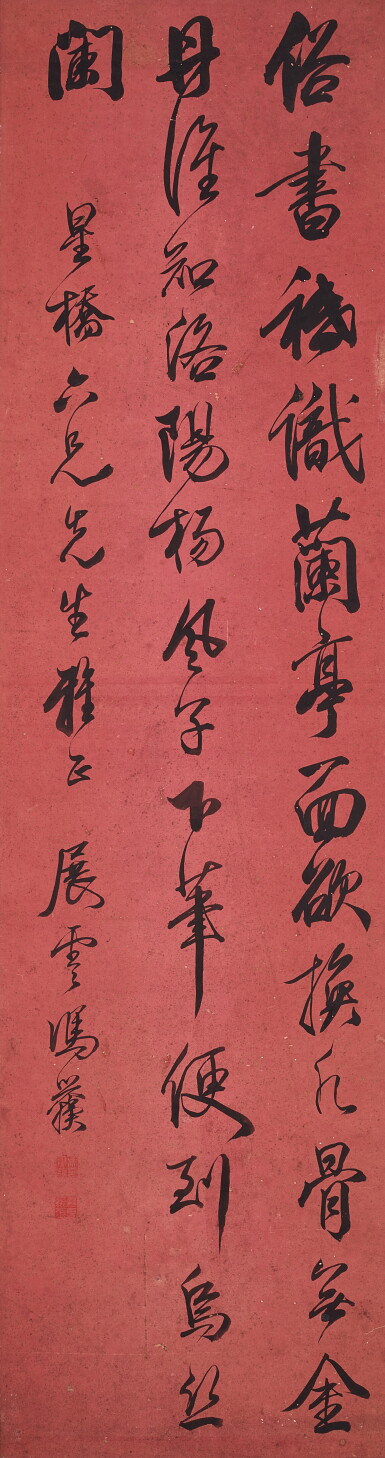 俗書秪識蘭亭面欲換凡骨無金
丹誰知洛陽楊風子下筆便到烏丝
闌
星橋六兄先生雅正
展雲馮譽